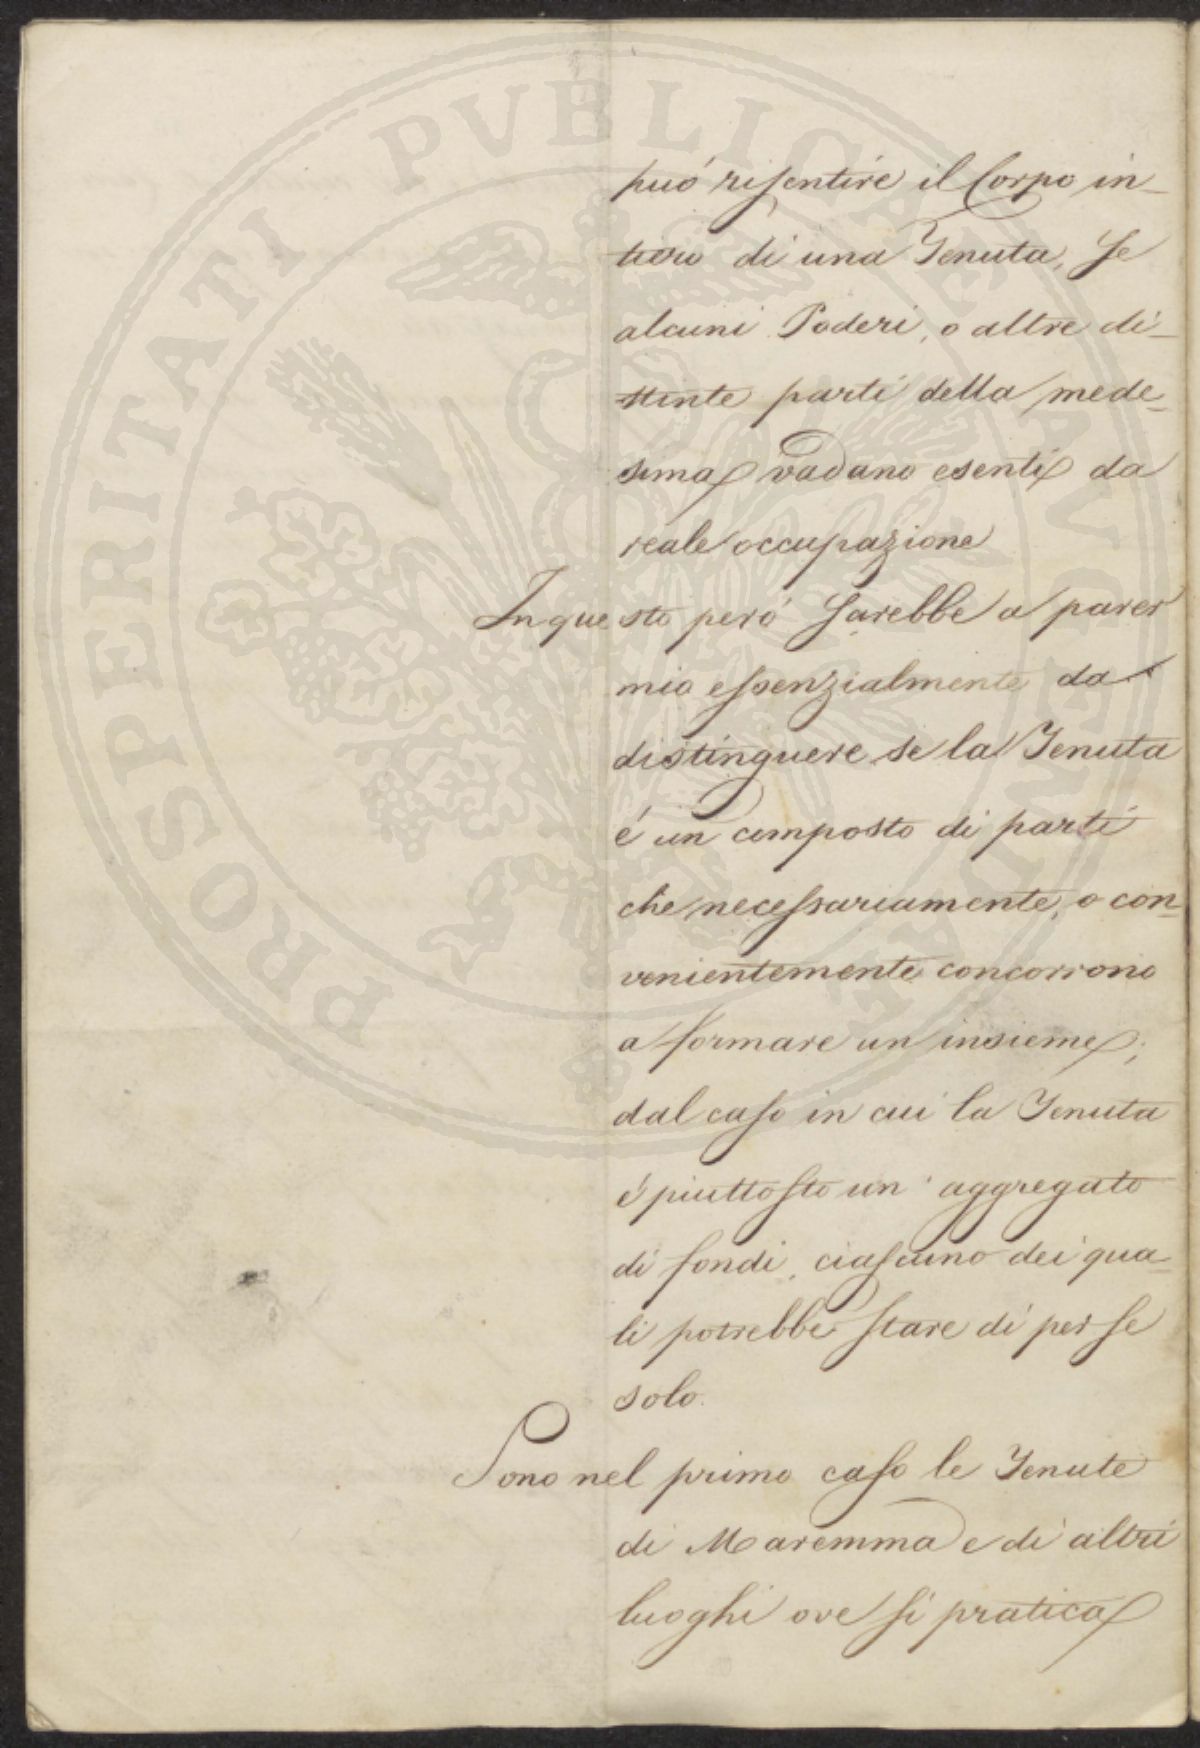 PROSPERITATI PVBLICAE AVGENDAE
può risentire il Corpo in-
tiero di una Tenuta, se
alcuni Poderi, o altre di-
stinte parti della mede-
sima vadano esenti da
reale occupazione
In questo però sarebbe a parer
mio essenzialmente da
distinguere se la Tenuta
é un composto di parti
che necessariamente, o con-
venientemente concorrono
a formare un insieme;
dal caso in cui la Tenuta
é piuttosto un aggregato
di fondi, ciascuno dei qua-
li potrebbe stare di per se
solo.
Sono nel primo caso le Tenute
di Maremma e di altri
luoghi ove si pratica